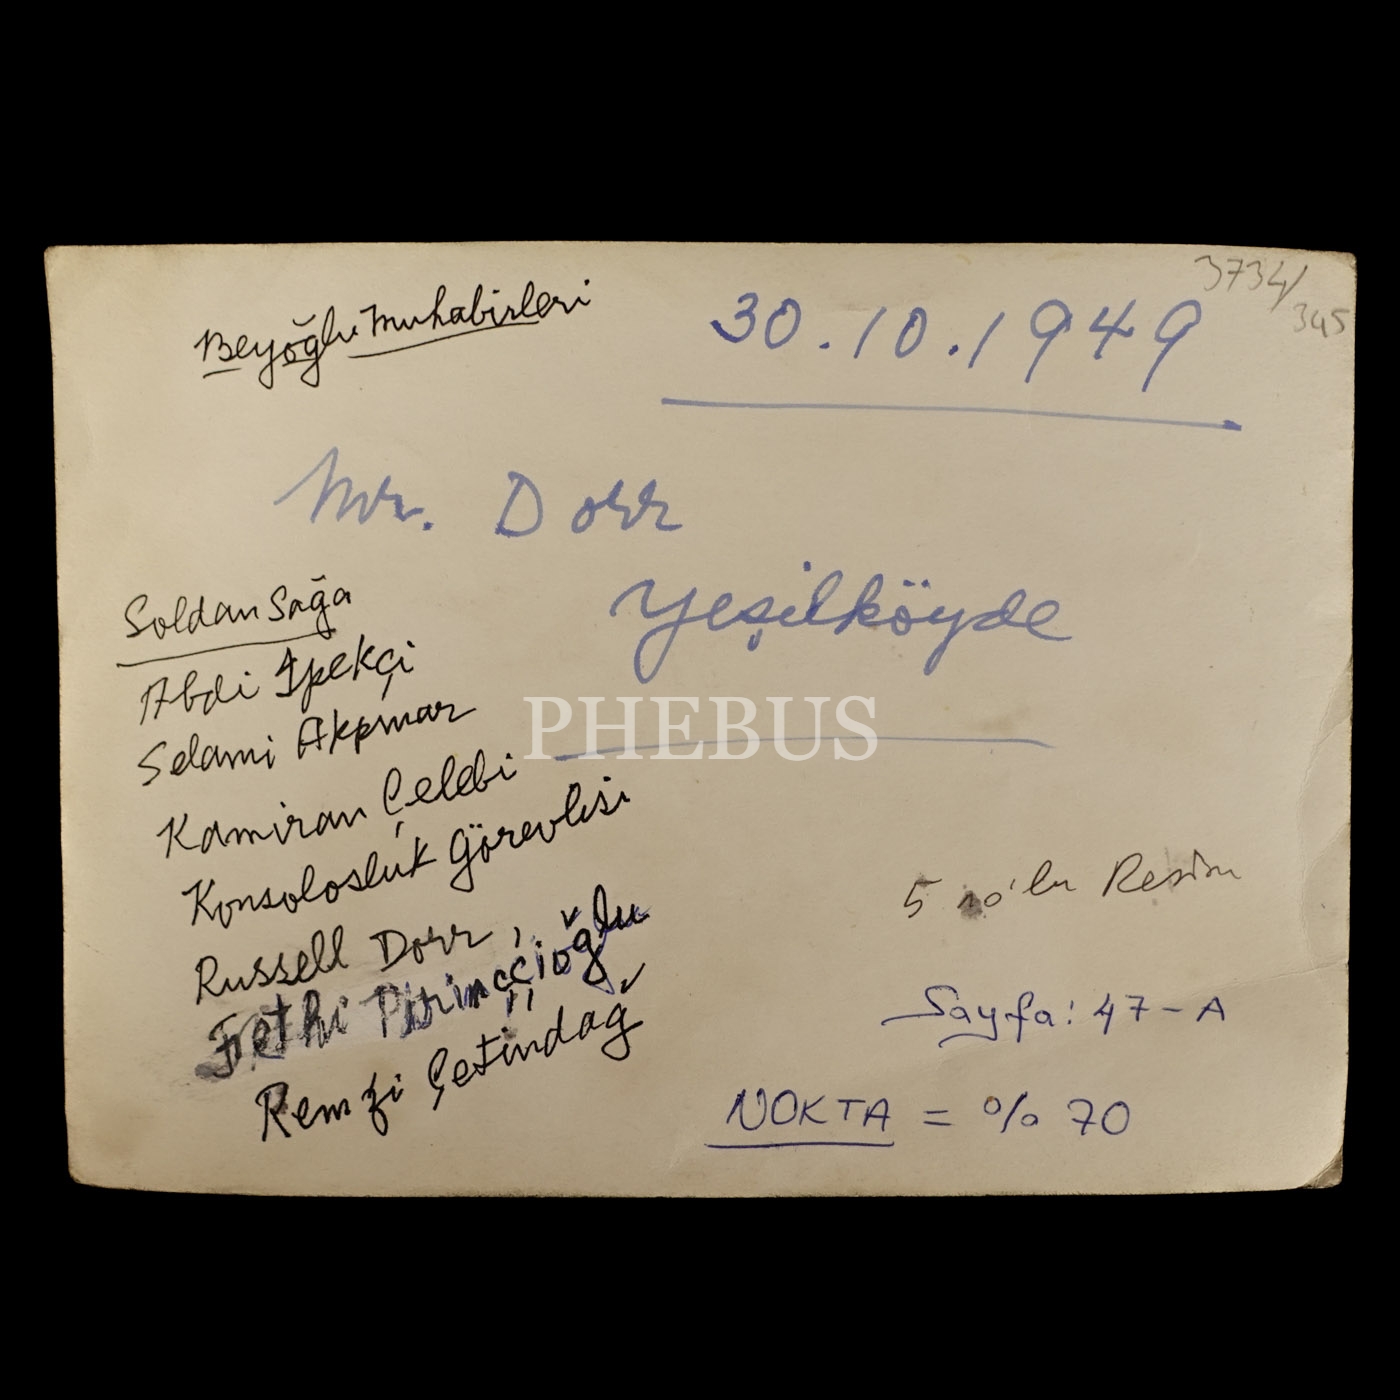 3734/
345
Beyoğlu Muhabirleri
30.10.1949
Mr. Dorr
Yeşilköyde
Soldan Sağa
Abdi İpekçi
Selami Akpınar
Kamiran Çelebi
Konsolosluk Görevlisi
Russell Dorr,
Fethi Pirinççioğlu
Remzi Çetindağ
PHEBUS
5 no'lu Resim
Sayfa: 47-A
NOKTA = % 70